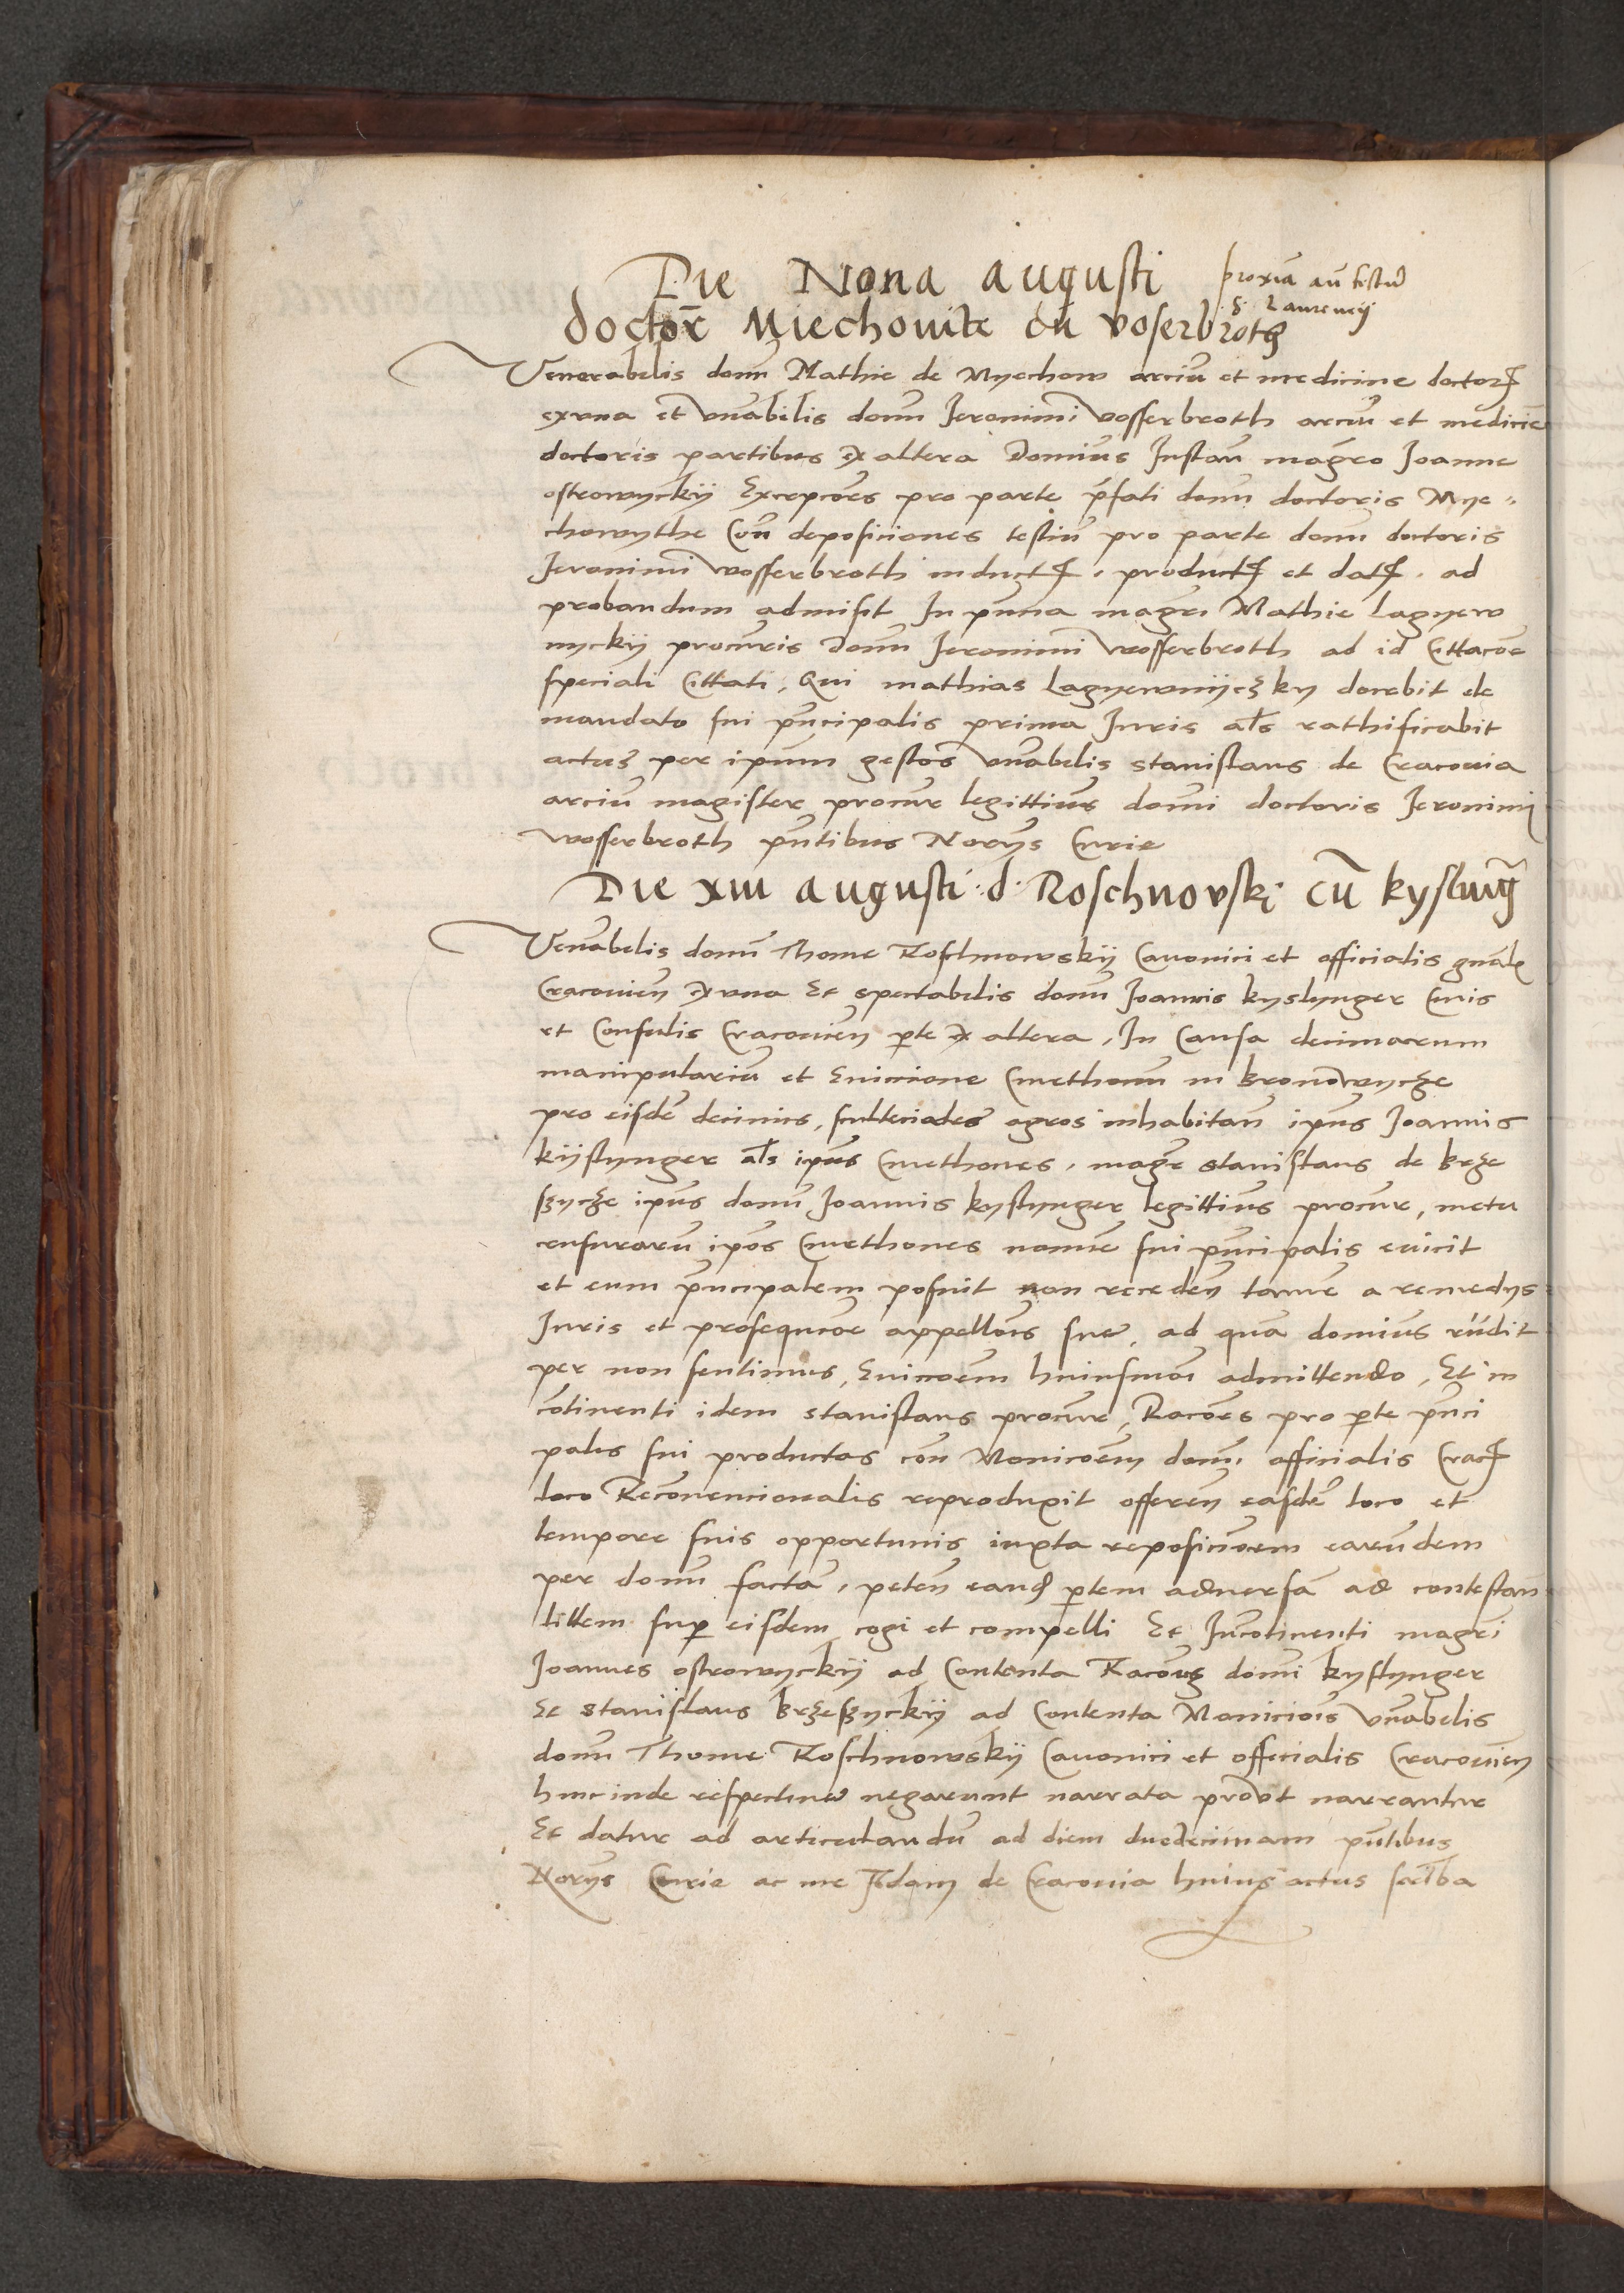 Die Nona augusti proxīa an̄ festū
S. Laurencij
doctor̄ Miechouite cū voserbroth
Venerabelis domī Mathie de Myechow arciū et medicine doctorꝭ
ex vna et vn̄abelis domī Jeronimi vosserbroth arciū et medicīe
doctoris partibus ex altera Domin̄us Instan̄ magr̄o Joanne
ostrowyckij Excepcōes pro parte p̄fati domī doctoris Mye-
chowythe Con̄ deposiciones testiū pro parte domī doctoris
Jeronimi vosserbroth inductꝭ, productꝭ et datꝭ. ad
probandum admisit In pn̄na magr̄i Mathie Lagyew
nyckij procur̄is Domī Jeronimi wosserbroth ad id Cittacōe
speciali Cittati, Qui mathias Lagyewnijczky docebit de
mandato sui pn̄cipalis prima Juris al̄s rathificabit
actus per ip̄um gestos vn̄abelis stanislaus de Cracouia
arciū magister procur̄ legittim̄us domī doctoris Jeronimi
wosserbroth pn̄tibus Norijs Curie
Die xiii augusti d. Roschnovski cū kyslinḡ
Ven̄abelis domī Thome Roschnowskij Canonici et officialis gn̄alis
Cracouien̄ ex vna Et spectabelis domī Joannis kyslynger Ciuis
et Consulis Cracouien̄ p̄te ex altera, In Causa decimarum
manipulariū et Euicione Cmethonum in Bronowycze
pro eisdē decimis, sculteciales agros inhabitan̄ ip̄ius Joannis
kijslynger al̄s ip̄ius Cmethones, magr̄ stanislaus de Brze
szycze ip̄ius domī Joannis kyslynger legittim̄us procur̄, metu
censurarū ip̄os Cmethones nomīe sui pn̄cipalis euicit
et eum pn̄cipalem posuit non receden̄ tamē a remedijs
Juris et prosequcōe appellōnis sue, ad quā domin̄us rn̄dit
per non sentimus, Euiccōem huiusmōi admittendo, Et in
cōtinenti idem stanislaus procur̄, Racōes pro p̄te pn̄ci
palis sui productas con̄ Monicōem domī officialis Cracꝭ
loco Recōnencionalis reproduxit offeren̄ easdē loco et
tempore suis opportunis iuxta reposiciōem earūdem
per domī factā, peten̄ eandē p̄tem aduersā ad contestan̄
littem sup̄ eisdem cogi et compelli Et Incōtinenti magr̄i
Joannes ostrowyckij ad Contenta Racōnis domī kyslynger
Et stanislaus Brzeszyckij ad Contenta Moniciōis vn̄abelis
domī Thome Roschnowskij Canonici et officialis Cracouien̄
hincinde respectiue negarunt narrata prout narrantur
Et datur ad articulandū ad diem duodecimam pn̄tibus
Norijs Curie ac me Adam de Cracouia huius actus scriba